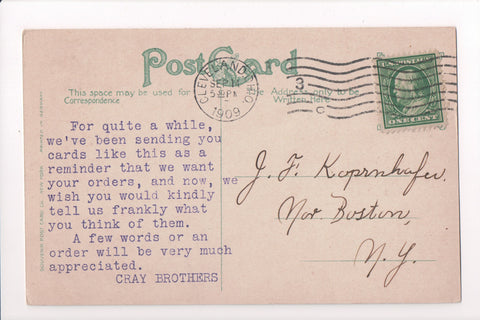 Post Card
This space may be used for
Correspondence
Address only to be
Written Here
CLEVELAND, OHIO
SEP
5 PM
1909
3
C
U.S. POSTAGE
ONE CENT
For quite a while,
we've been sending you
cards like this as a
reminder that we want
your orders, and now, we
wish you would kindly
tell us frankly what
you think of them.
A few words or an
order will be very much
appreciated.
CRAY BROTHERS
J. F. Koprnhafer
Nor. Boston,
N. Y.
SOUVENIR POST CARD CO. NEW YORK
PRINTED IN GERMANY